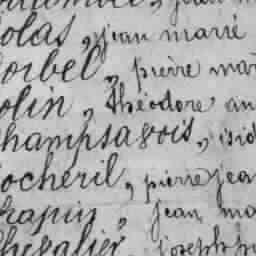 olas, jean marie
orbel, pierre mar
olin, Théodore au
hampsavois, isid
ocheril, pierre jea
hapin, jean ma
hevalier, joseph